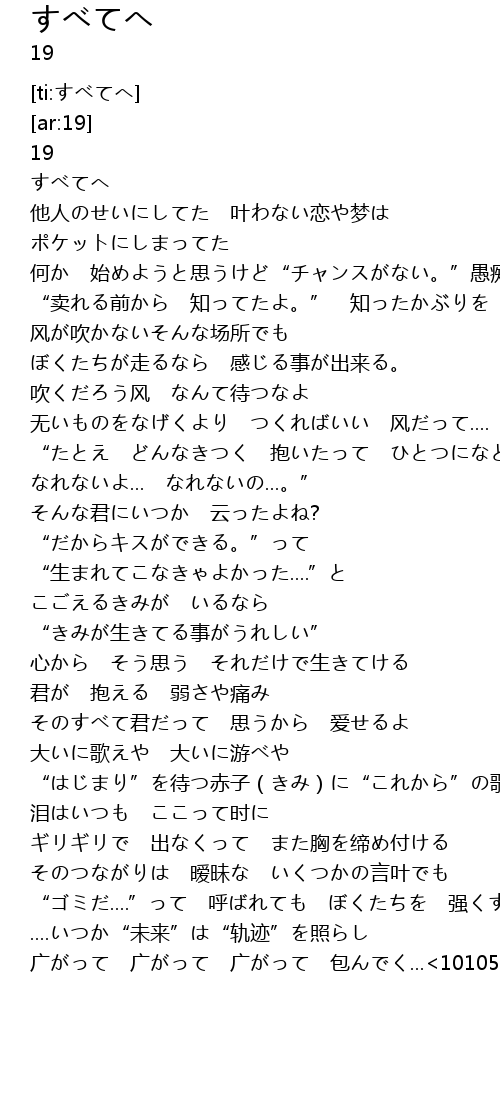 すべてへ
19
[ti:すべてへ]
[ar:19]
19
すべてへ
他人のせいにしてた　叶わない恋や梦は
ポケットにしまってた
何か　始めようと思うけど“チャンスがない。”愚痴
“卖れる前から　知ってたよ。”　知ったかぶりを
风が吹かないそんな场所でも
ぼくたちが走るなら　感じる事が出来る。
吹くだろう风　なんて待つなよ
无いものをなげくより　つくればいい　风だって....
“たとえ　どんなきつく　抱いたって　ひとつになど
なれないよ...　なれないの...。”
そんな君にいつか　云ったよね?
“だからキスができる。”って
“生まれてこなきゃよかった....”と
こごえるきみが　いるなら
“きみが生きてる事がうれしい”
心から　そう思う　それだけで生きてける
君が　抱える　弱さや痛み
そのすべて君だって　思うから　爱せるよ
大いに歌えや　大いに游べや
“はじまり”を待つ赤子(きみ)に“これから”の歌
泪はいつも　ここって时に
ギリギリで　出なくって　また胸を缔め付ける
そのつながりは　暧昧な　いくつかの言叶でも
“ゴミだ....”って　呼ばれても　ぼくたちを　强くす
....いつか“未来”は“轨迹”を照らし
广がって　广がって　广がって　包んでく...<10105